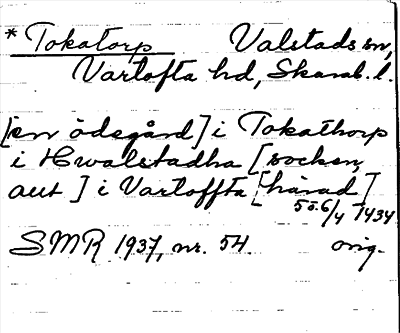 * Tokatorp Valstads sn,
Vartofta hd, Skarab. l.
[en ödegård] i Tokathorp
i Hwalstadha [socken,
aut] i Vartoffta [härad]
5 ö. 6/4 1434
SMR 1937, nr. 54. orig.